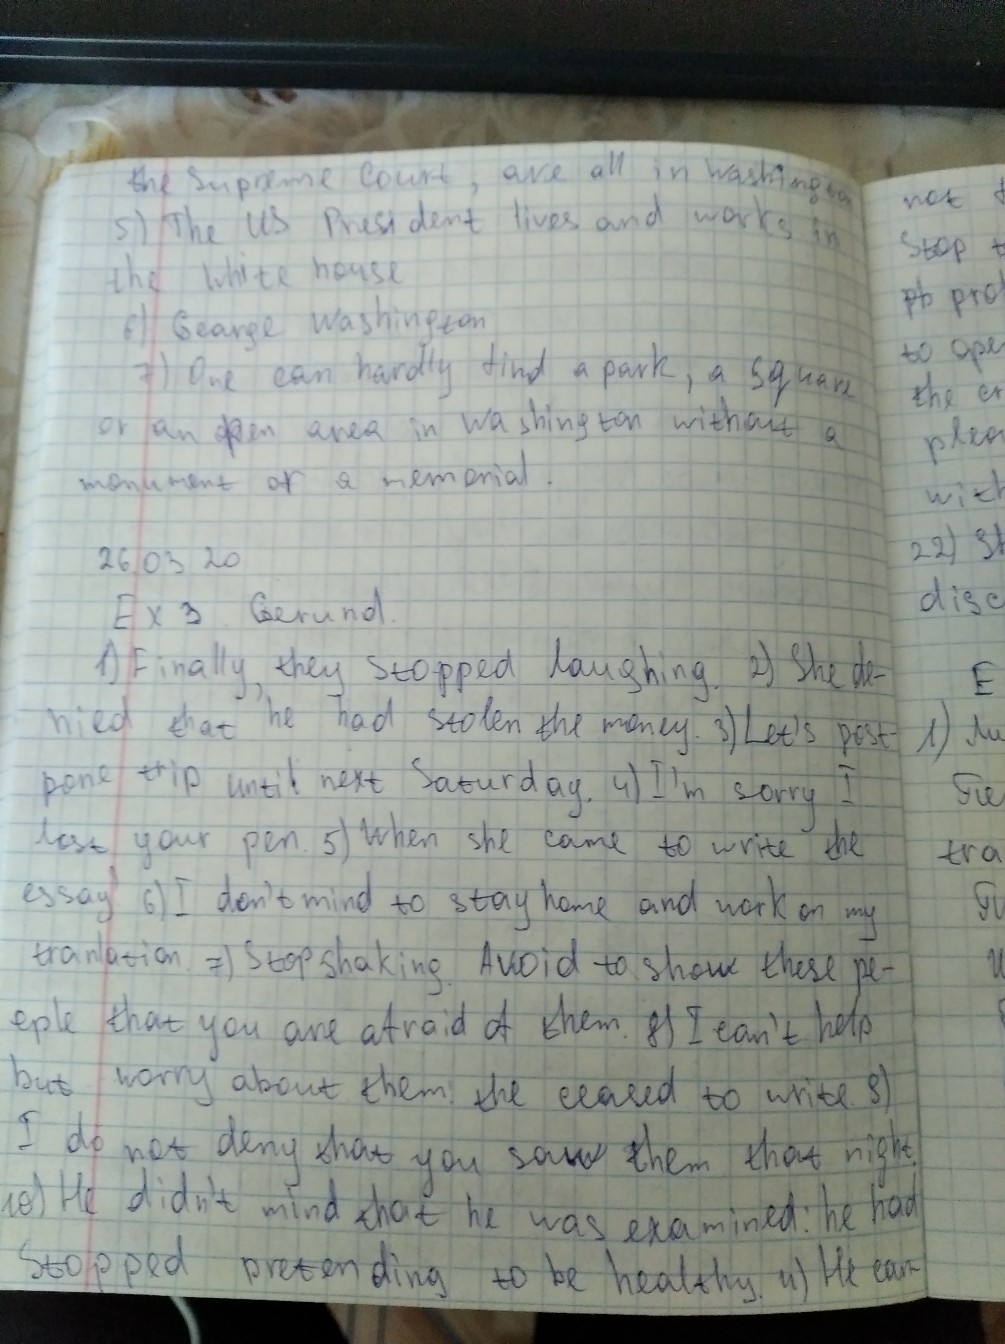 the Supreme Court, are all in Washington
5) The US President lives and works in
the White house
6) George Washington
7) One can hardly find a park, a square
or an open area in Washington without a
monument or a memorial.
26 03 20
Ex 3 Gerund.
1) Finally, they stopped laughing. 2) She de-
nied that he had stolen the money. 3) Let's post-
pone trip until next Saturday. 4) I'm sorry I
lost your pen. 5) When she came to write the
essay 6) I don't mind to stay home and work on my
tranlation. 7) Stop shaking. Avoid to show these pe-
eple that you are afraid of them. 8) I can't help
but worry about them: the ceased to write. 9)
I do not deny that you saw them that night.
10) He didn't mind that he was examined: he had
stopped pretending to be healthy. 11) He can-
not
stop t
pb pro
to ope
the
plea
with
22) St
disc
E
1)
tra